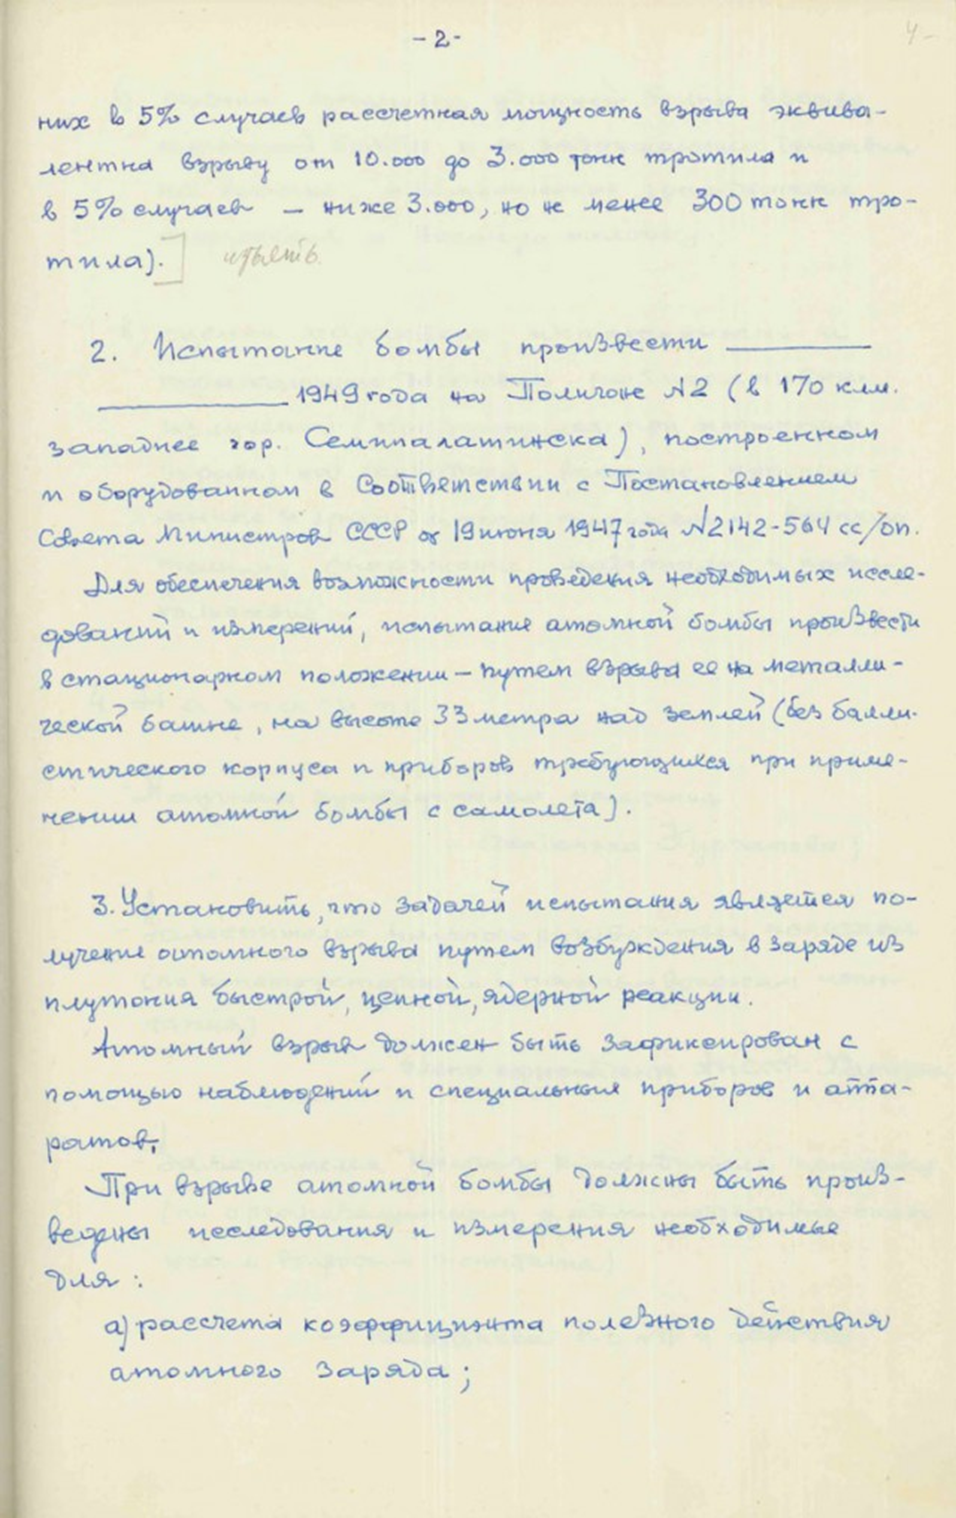 - 2 -
4 -
них в 5% случаев рассчетная мощность взрыва эквива-
лентна взрыву от 10.000 до 3.000 тонн тротила и
в 5% случаев — ниже 3.000, но не менее 300 тонн тро-
тила).] изъять
2. Испытание бомбы произвести ________
________ 1949 года на Полигоне N2 (в 170 клм.
западнее гор. Семипалатинска), построенном
и оборудованном в соответствии с Постановлением
Совета Министров СССР от 19 июня 1947 года N2142-564 сс/оп.
Для обеспечения возможности проведения необходимых иссле-
дований и измерений, испытание атомной бомбы произвести
в стационарном положении — путем взрыва ее на металли-
ческой башне, на высоте 33 метра над землей (без балли-
стического корпуса и приборов требующихся при приме-
нении атомной бомбы с самолета).
3. Установить, что задачей испытания является по-
лучение атомного взрыва путем возбуждения в заряде из
плутония быстрой, цепной, ядерной реакции.
Атомный взрыв должен быть зафиксирован с
помощью наблюдений и специальных приборов и аппа-
ратов.
При взрыве атомной бомбы должны быть произ-
ведены исследования и измерения необходимые
для:
а) рассчета коэффициэнта полезного действия
атомного заряда;